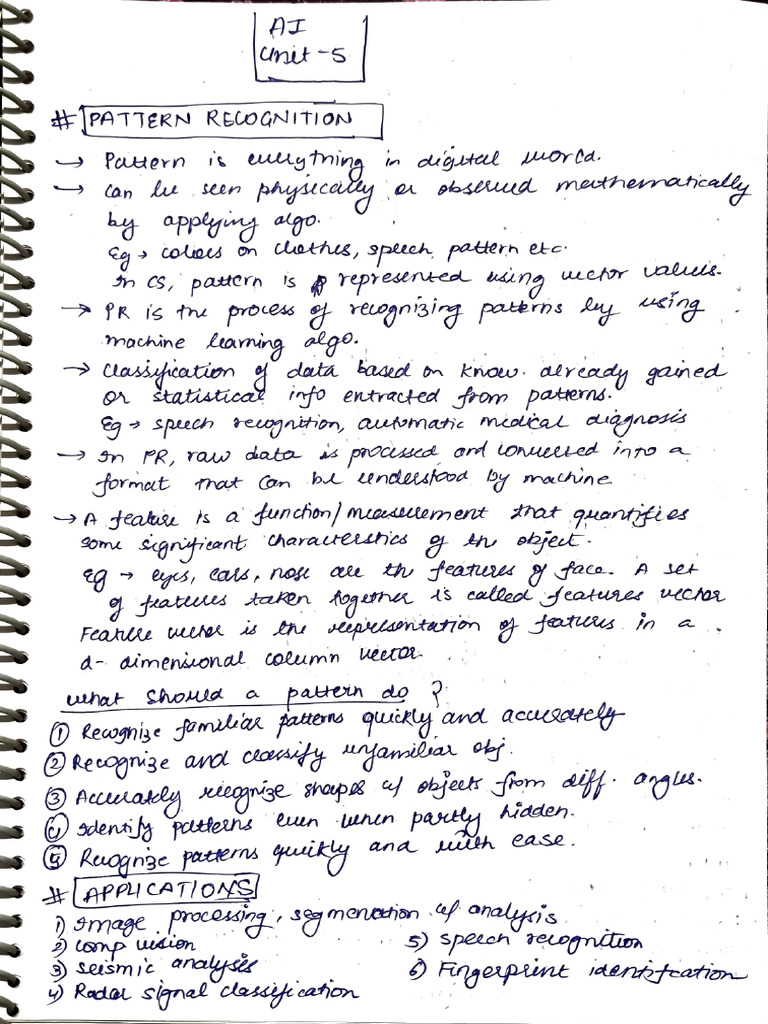 AI
Unit-5
# PATTERN RECOGNITION
→ Pattern is everything in digital world.
→ Can be seen physically or observed mathematically
by applying algo.
Eg → colours on clothes, speech pattern etc.
In CS, pattern is represented using vector values.
→ PR is the process of recognizing patterns by using
machine learning algo.
→ Classification of data based on know. already gained
or statistical info extracted from patterns.
Eg → speech recognition, automatic medical diagnosis
→ In PR, raw data is processed and converted into a
format that can be understood by machine
→ A feature is a function/measurement that quantifies
some significant characteristics of the object.
Eg → eyes, ears, nose are the features of face. A set
of features taken together is called features vector
Feature vector is the representation of features in a
d-dimensional column vector.
What should a pattern do ?
① Recognize familiar patterns quickly and accurately
② Recognize and classify unfamiliar obj.
③ Accurately recognize shapes & objects from diff. angles.
④ Identify patterns even when partly hidden.
⑤ Recognize patterns quickly and with ease.
# APPLICATIONS
1) Image processing, segmenation & analysis
2) Comp vision
3) seismic analysis
4) Radar signal classification
5) speech recognition
6) Fingerprint identification